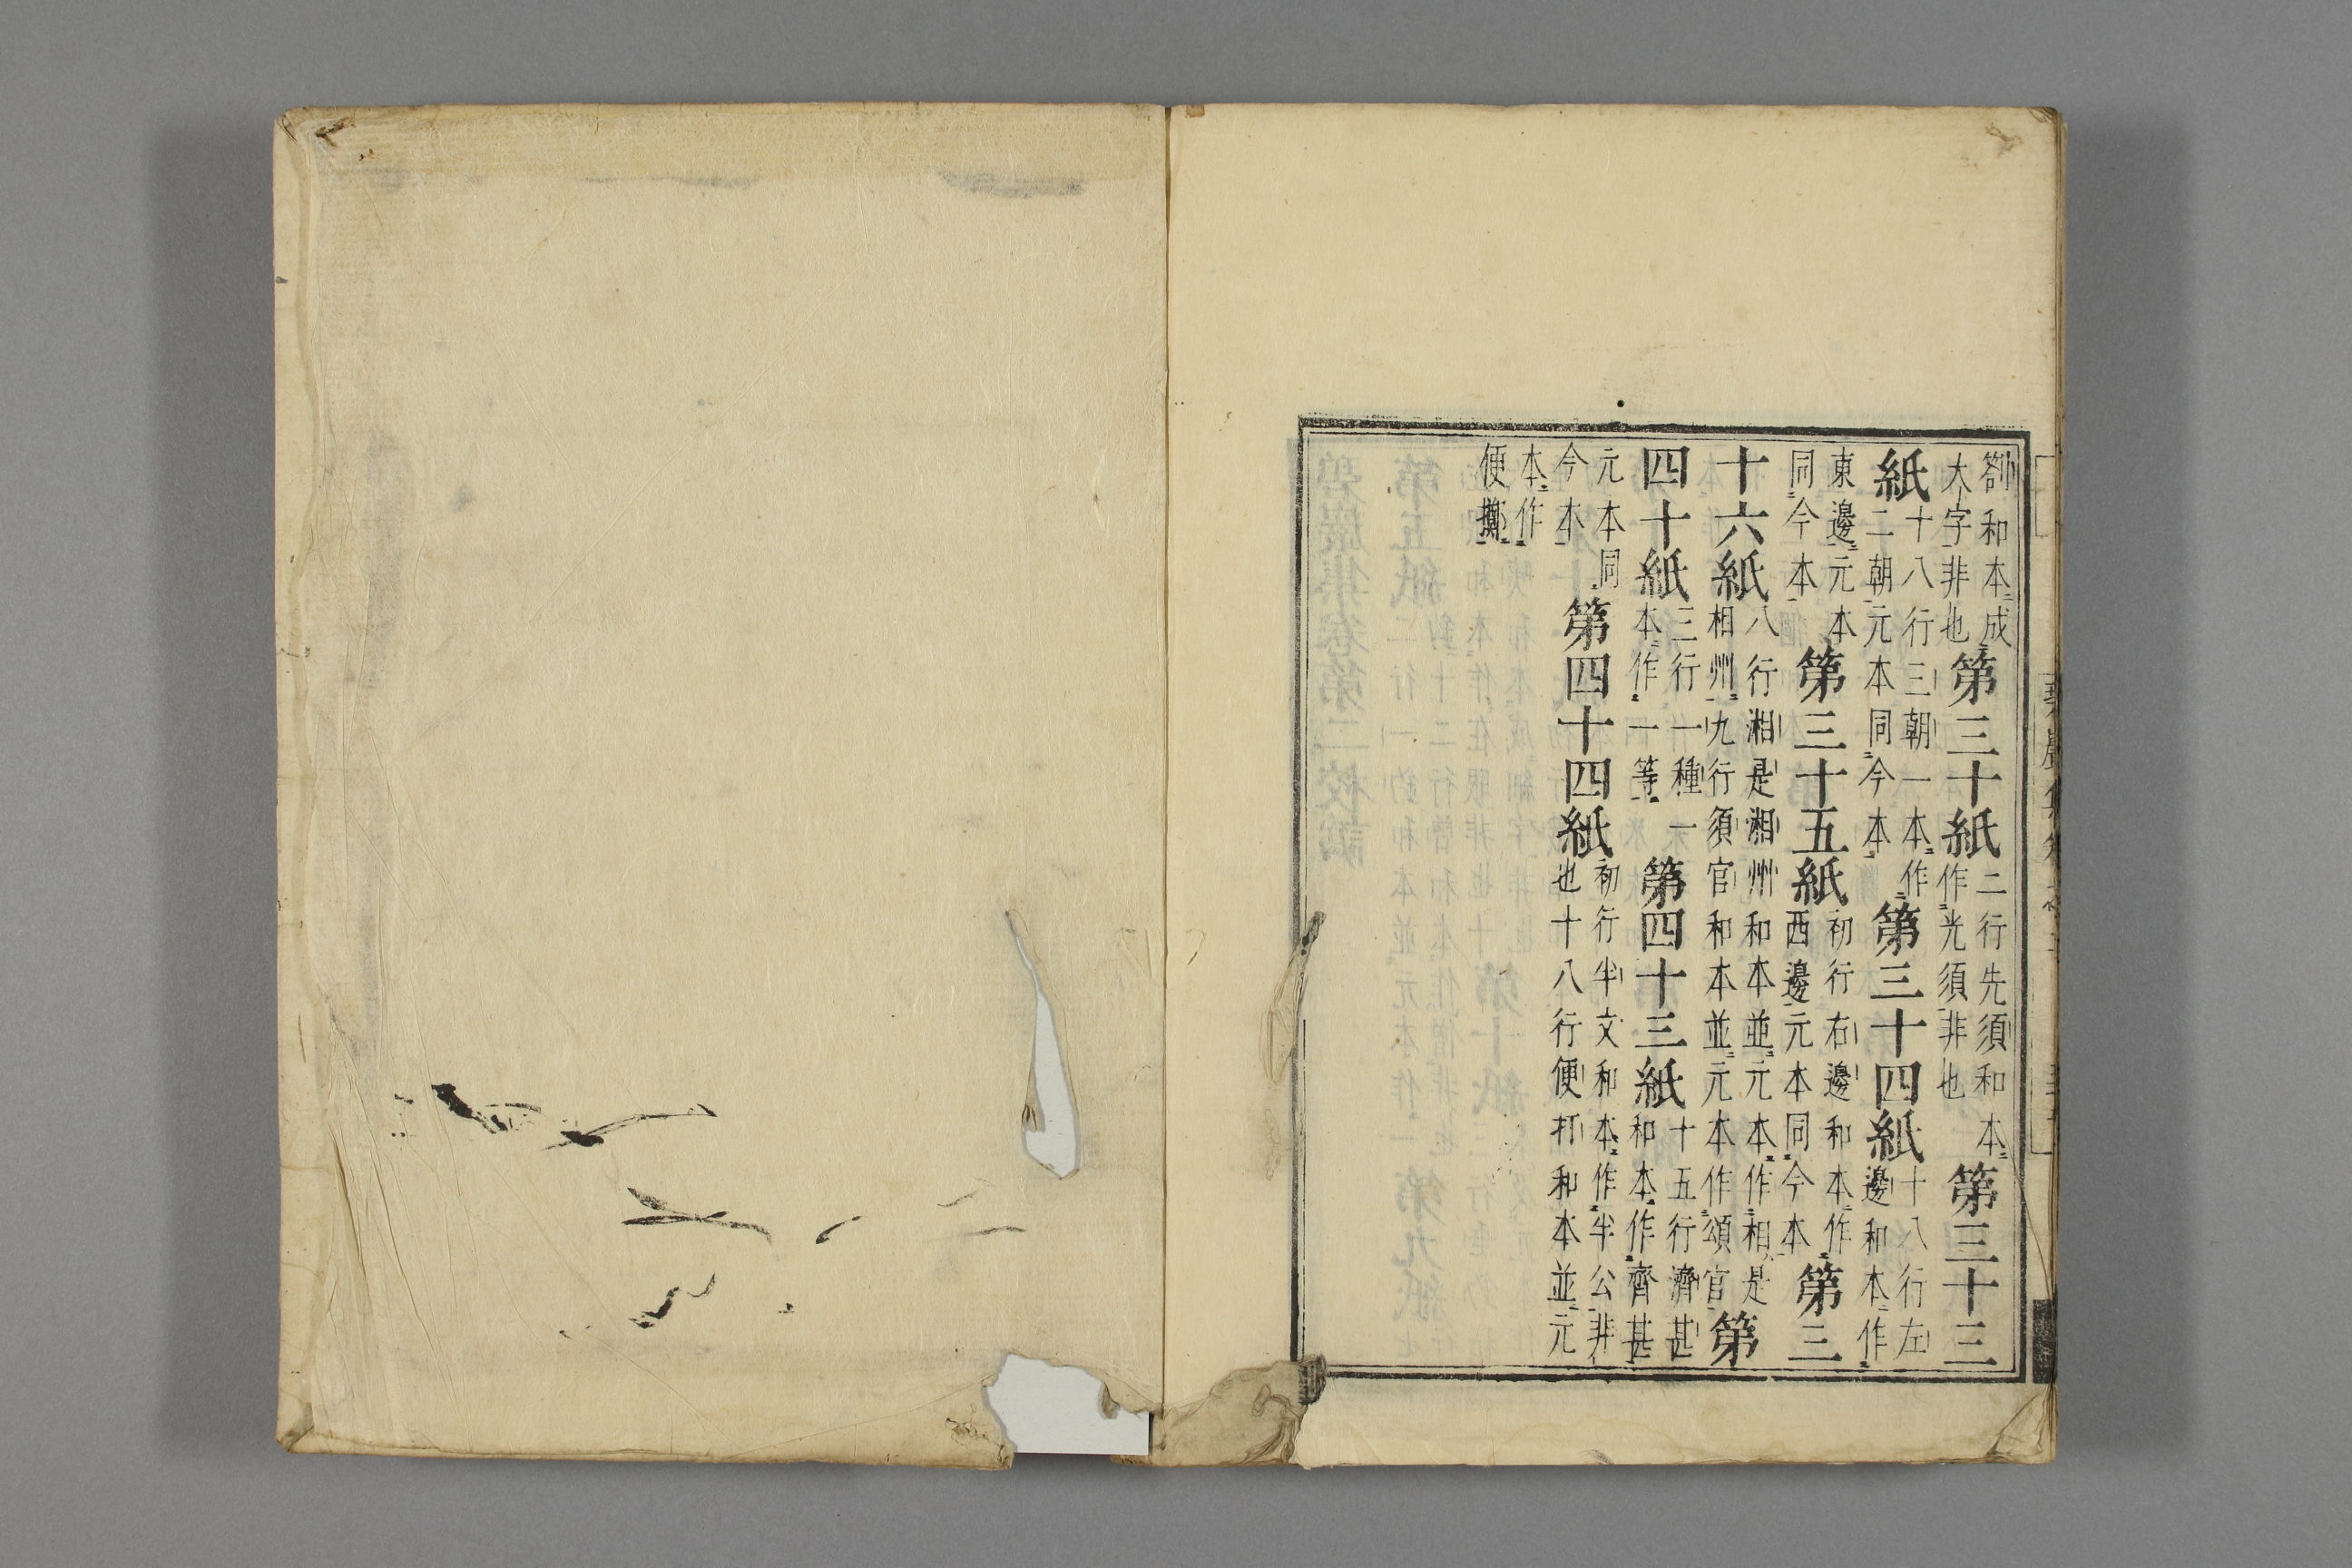 劄和本成大字非也第三十紙二行先須和本作光須非也第三十三
紙十八行三朝一本作二朝元本同今本第三十四紙十八行左邊和本作
東邊元本同今本第三十五紙初行右邊和本作西邊元本同今本第三
十六紙八行湘是湘州和本並元本作相是相州九行須官和本並元本作頌官第
四十紙三行一種一本作一等第四十三紙十五行濟甚和本作齊甚
元本同今本第四十四紙初行半文和本作半公非也十八行便打和本並元
本作便擲